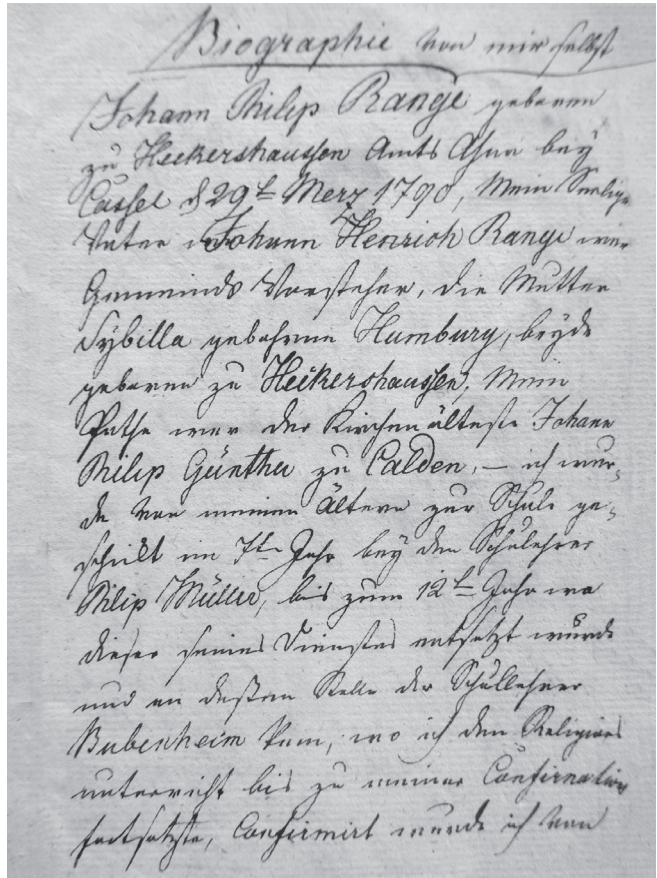 Biographie von mir selbst
Johann Philip Range geboren
zu Heckershaussen Amts Ahna bey
Cassel d 29t Merz 1790, Mein Seelig.
Vater Johann Henrich Range war
Gemeinds Vorsteher, die Mutter
Sybilla gebohrne Humburg, beyde
geboren zu Heckershaussen, Mein
Pathe war der Kirchenälteste Johann
Philip Günther zu Calden, – ich wur-
de von meinen Ältern zur Schule ge-
schickt im 7ten Jahr bey dem Schulehrer
Philip Müller, bis zum 12ten Jahr wo
dieser seines Dienstes entsetzt wurde
und an deßen Stelle der Schullehrer
Bubenheim kam, wo ich den Religions
unterricht bis zu meiner Confirmation
fortsetzte, Confirmirt wurde ich von